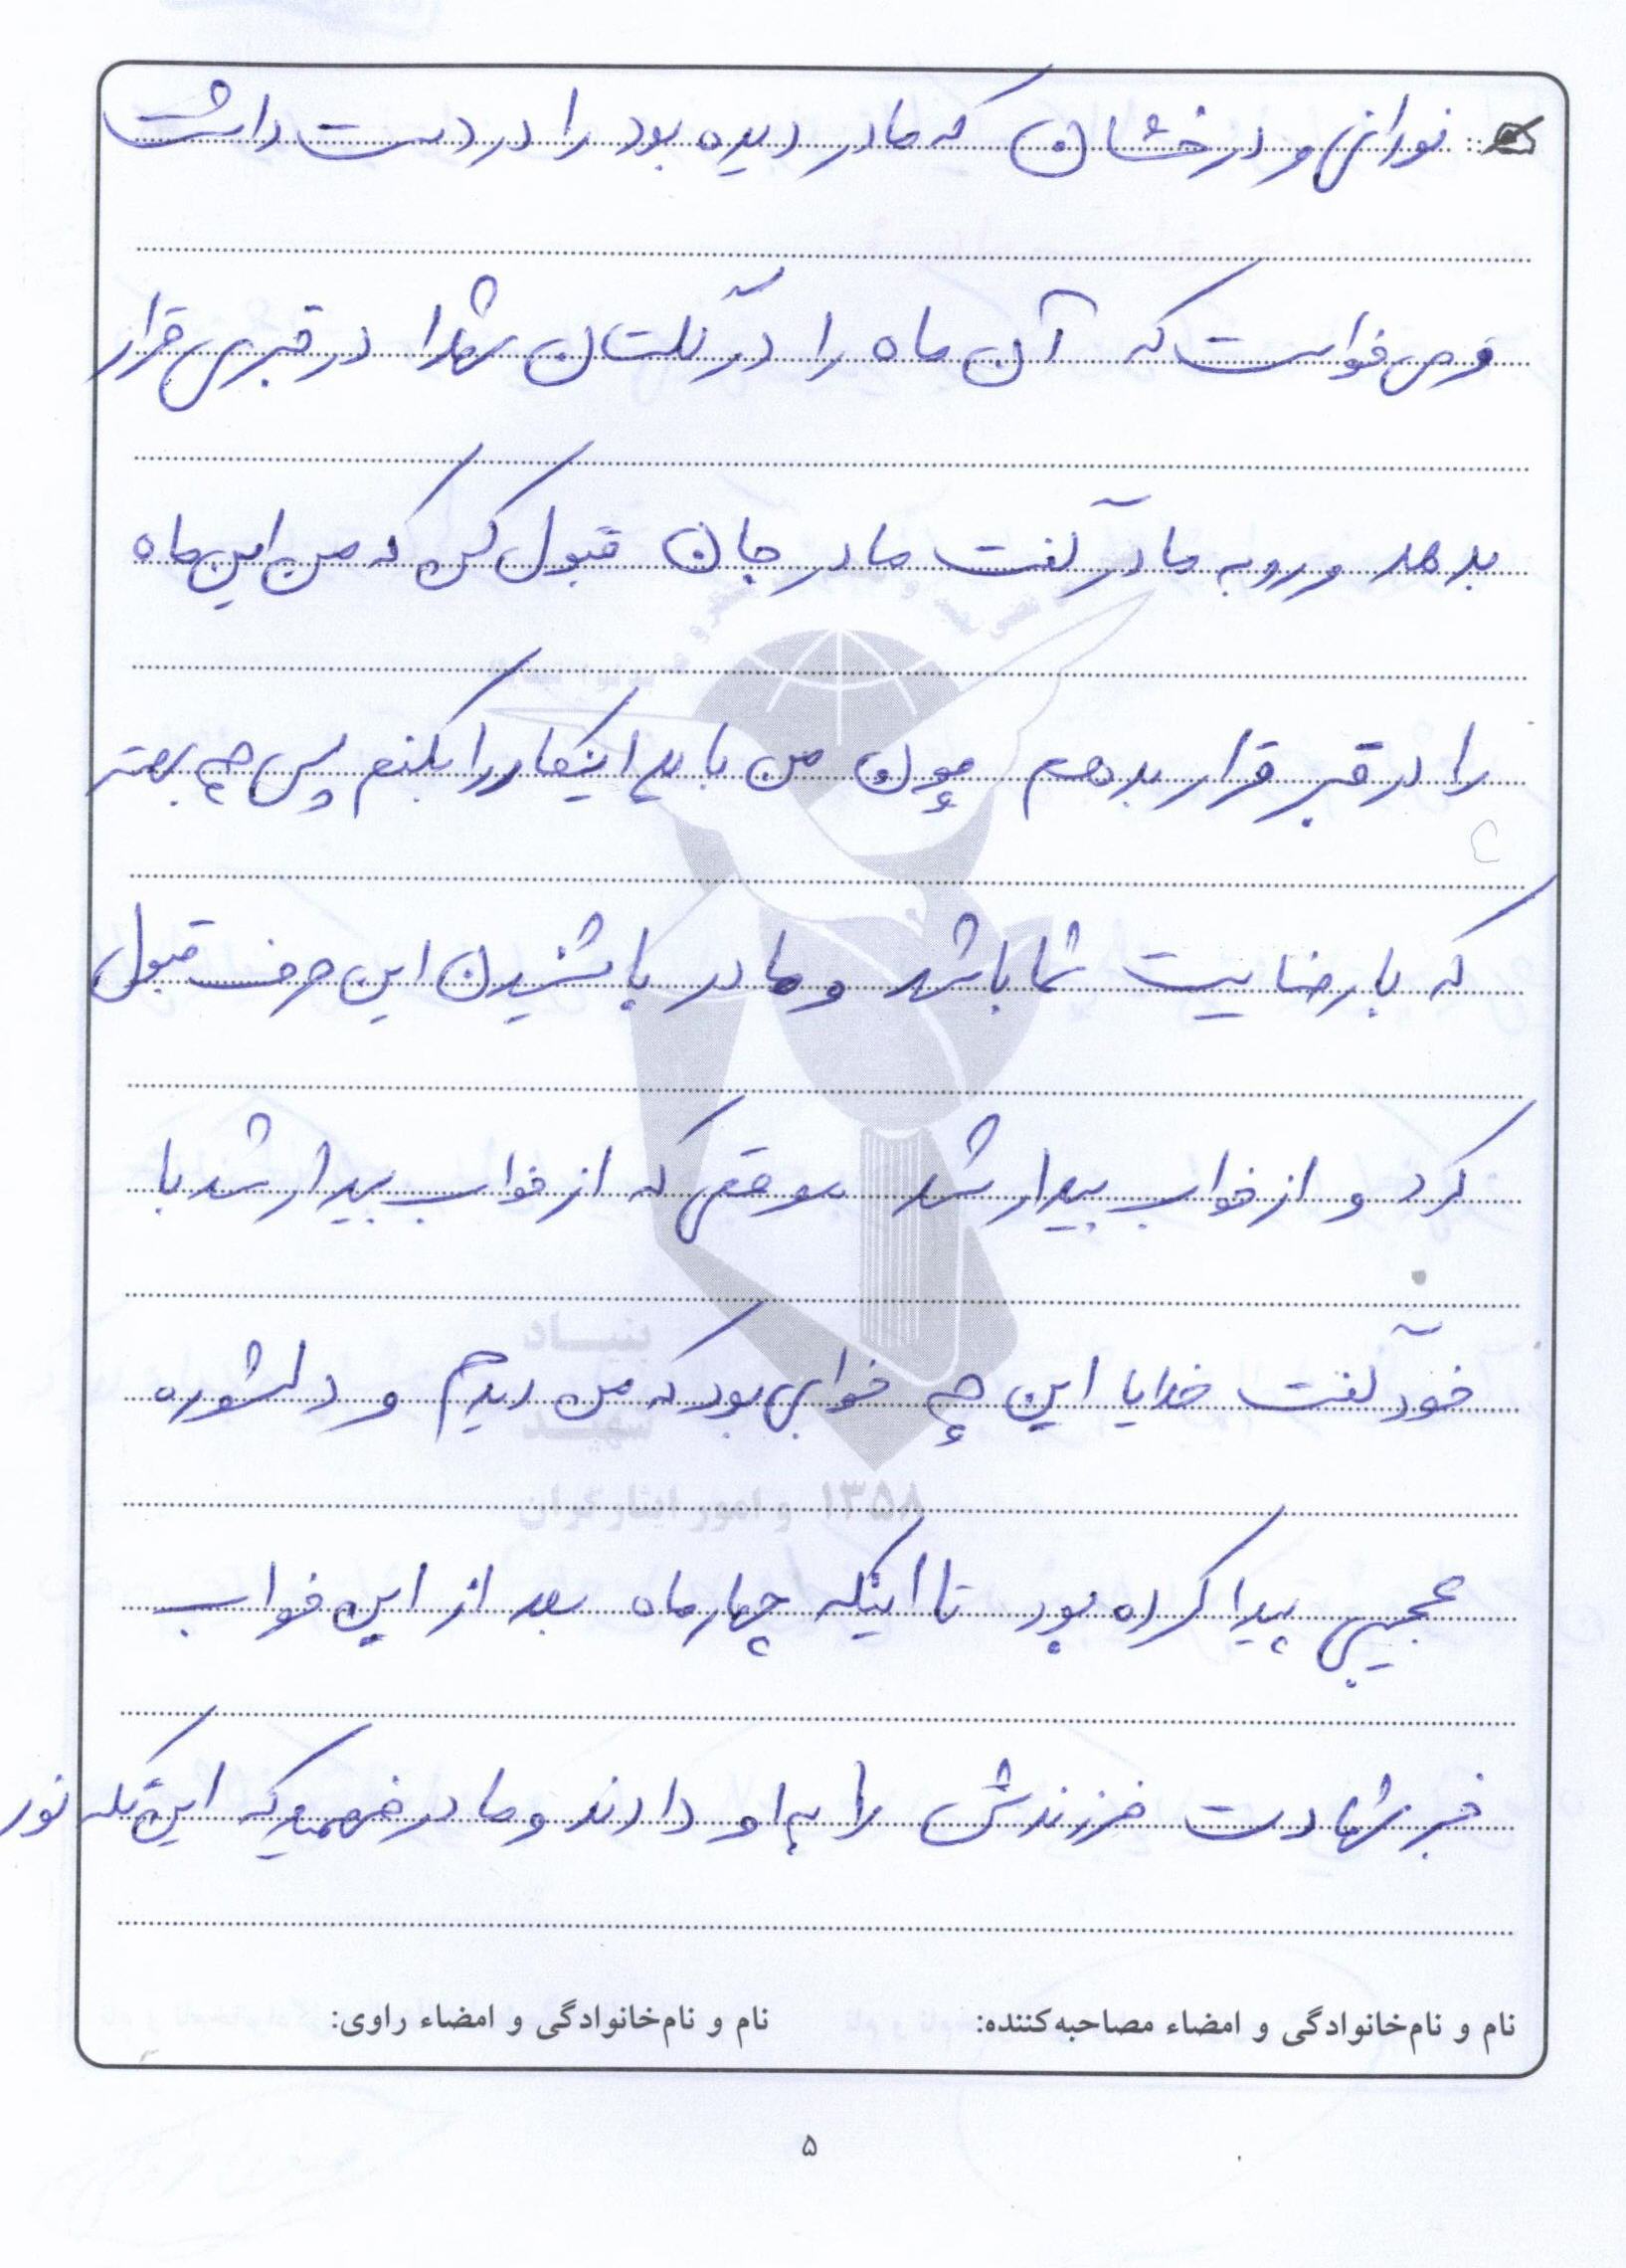 نورانی و درخشان که مادر دیده بود را در دست داشت
و می خواست که آن ماه را در گلستان شهدا در قبری قرار
بدهد و رو به مادر گفت مادر جان قبول کن که من این ماه
را در قبر قرار بدهم چون من باید اینکار را بکنم پس چه بهتر
که با رضایت شما باشد و مادر با شنیدن این حرف قبول
کرد و از خواب بیدار شد موقعی که از خواب بیدار شد با
خود گفت خدایا این چه خوابی بود که من دیدم و دلشوره
عجیبی پیدا کرده بود تا اینکه چهار ماه بعد از این خواب
خبر شهادت فرزندش را به او دادند و مادر فهمید که این تکه نور
بنیاد
شهید
و امور ایثارگران ۱۳۵۸
نام و نام‌خانوادگی و امضاء مصاحبه‌کننده: نام و نام‌خانوادگی و امضاء راوی:
۵